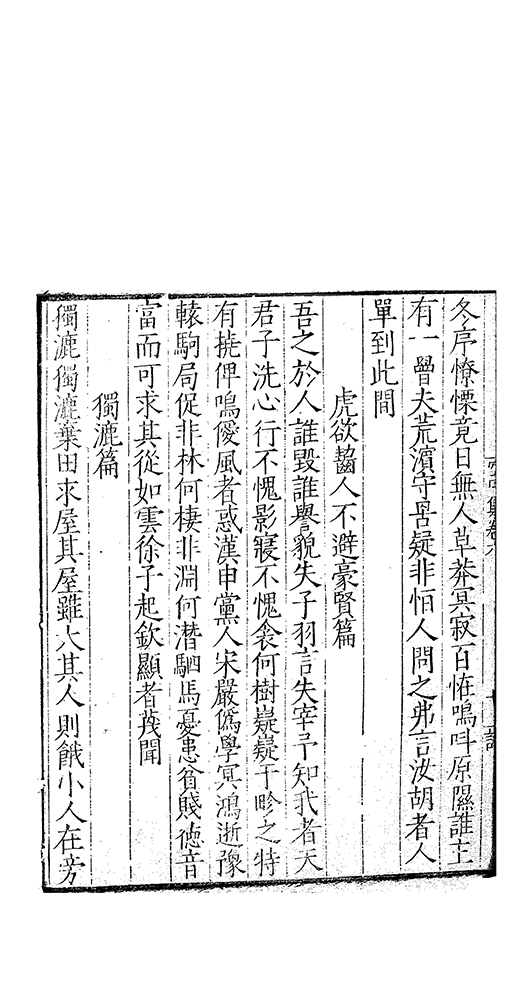 冬序憭慄竟日無人草莽冥寂百怪鳴呌原隰誰主
有一𤾉夫荒濱守𡱈疑非怕人問之弗言汝胡者人
單到此間
虎欲齧人不避豪賢篇
吾之於人誰毀誰譽貌失子羽言失宰予知我者天
君子洗心行不愧影寢不愧衾何樹嶷嶷于畛之特
有撓俾鳴優風者惑漢申黨人宋嚴僞學冥鴻逝豫
轅駒局促非林何棲非淵何潛駟馬憂患貧賤徳音
富而可求其從如雲徐子起欽顯者茂聞
獨漉篇
獨漉獨漉棄田求屋其屋雖大其人則餓小人在旁
集卷六